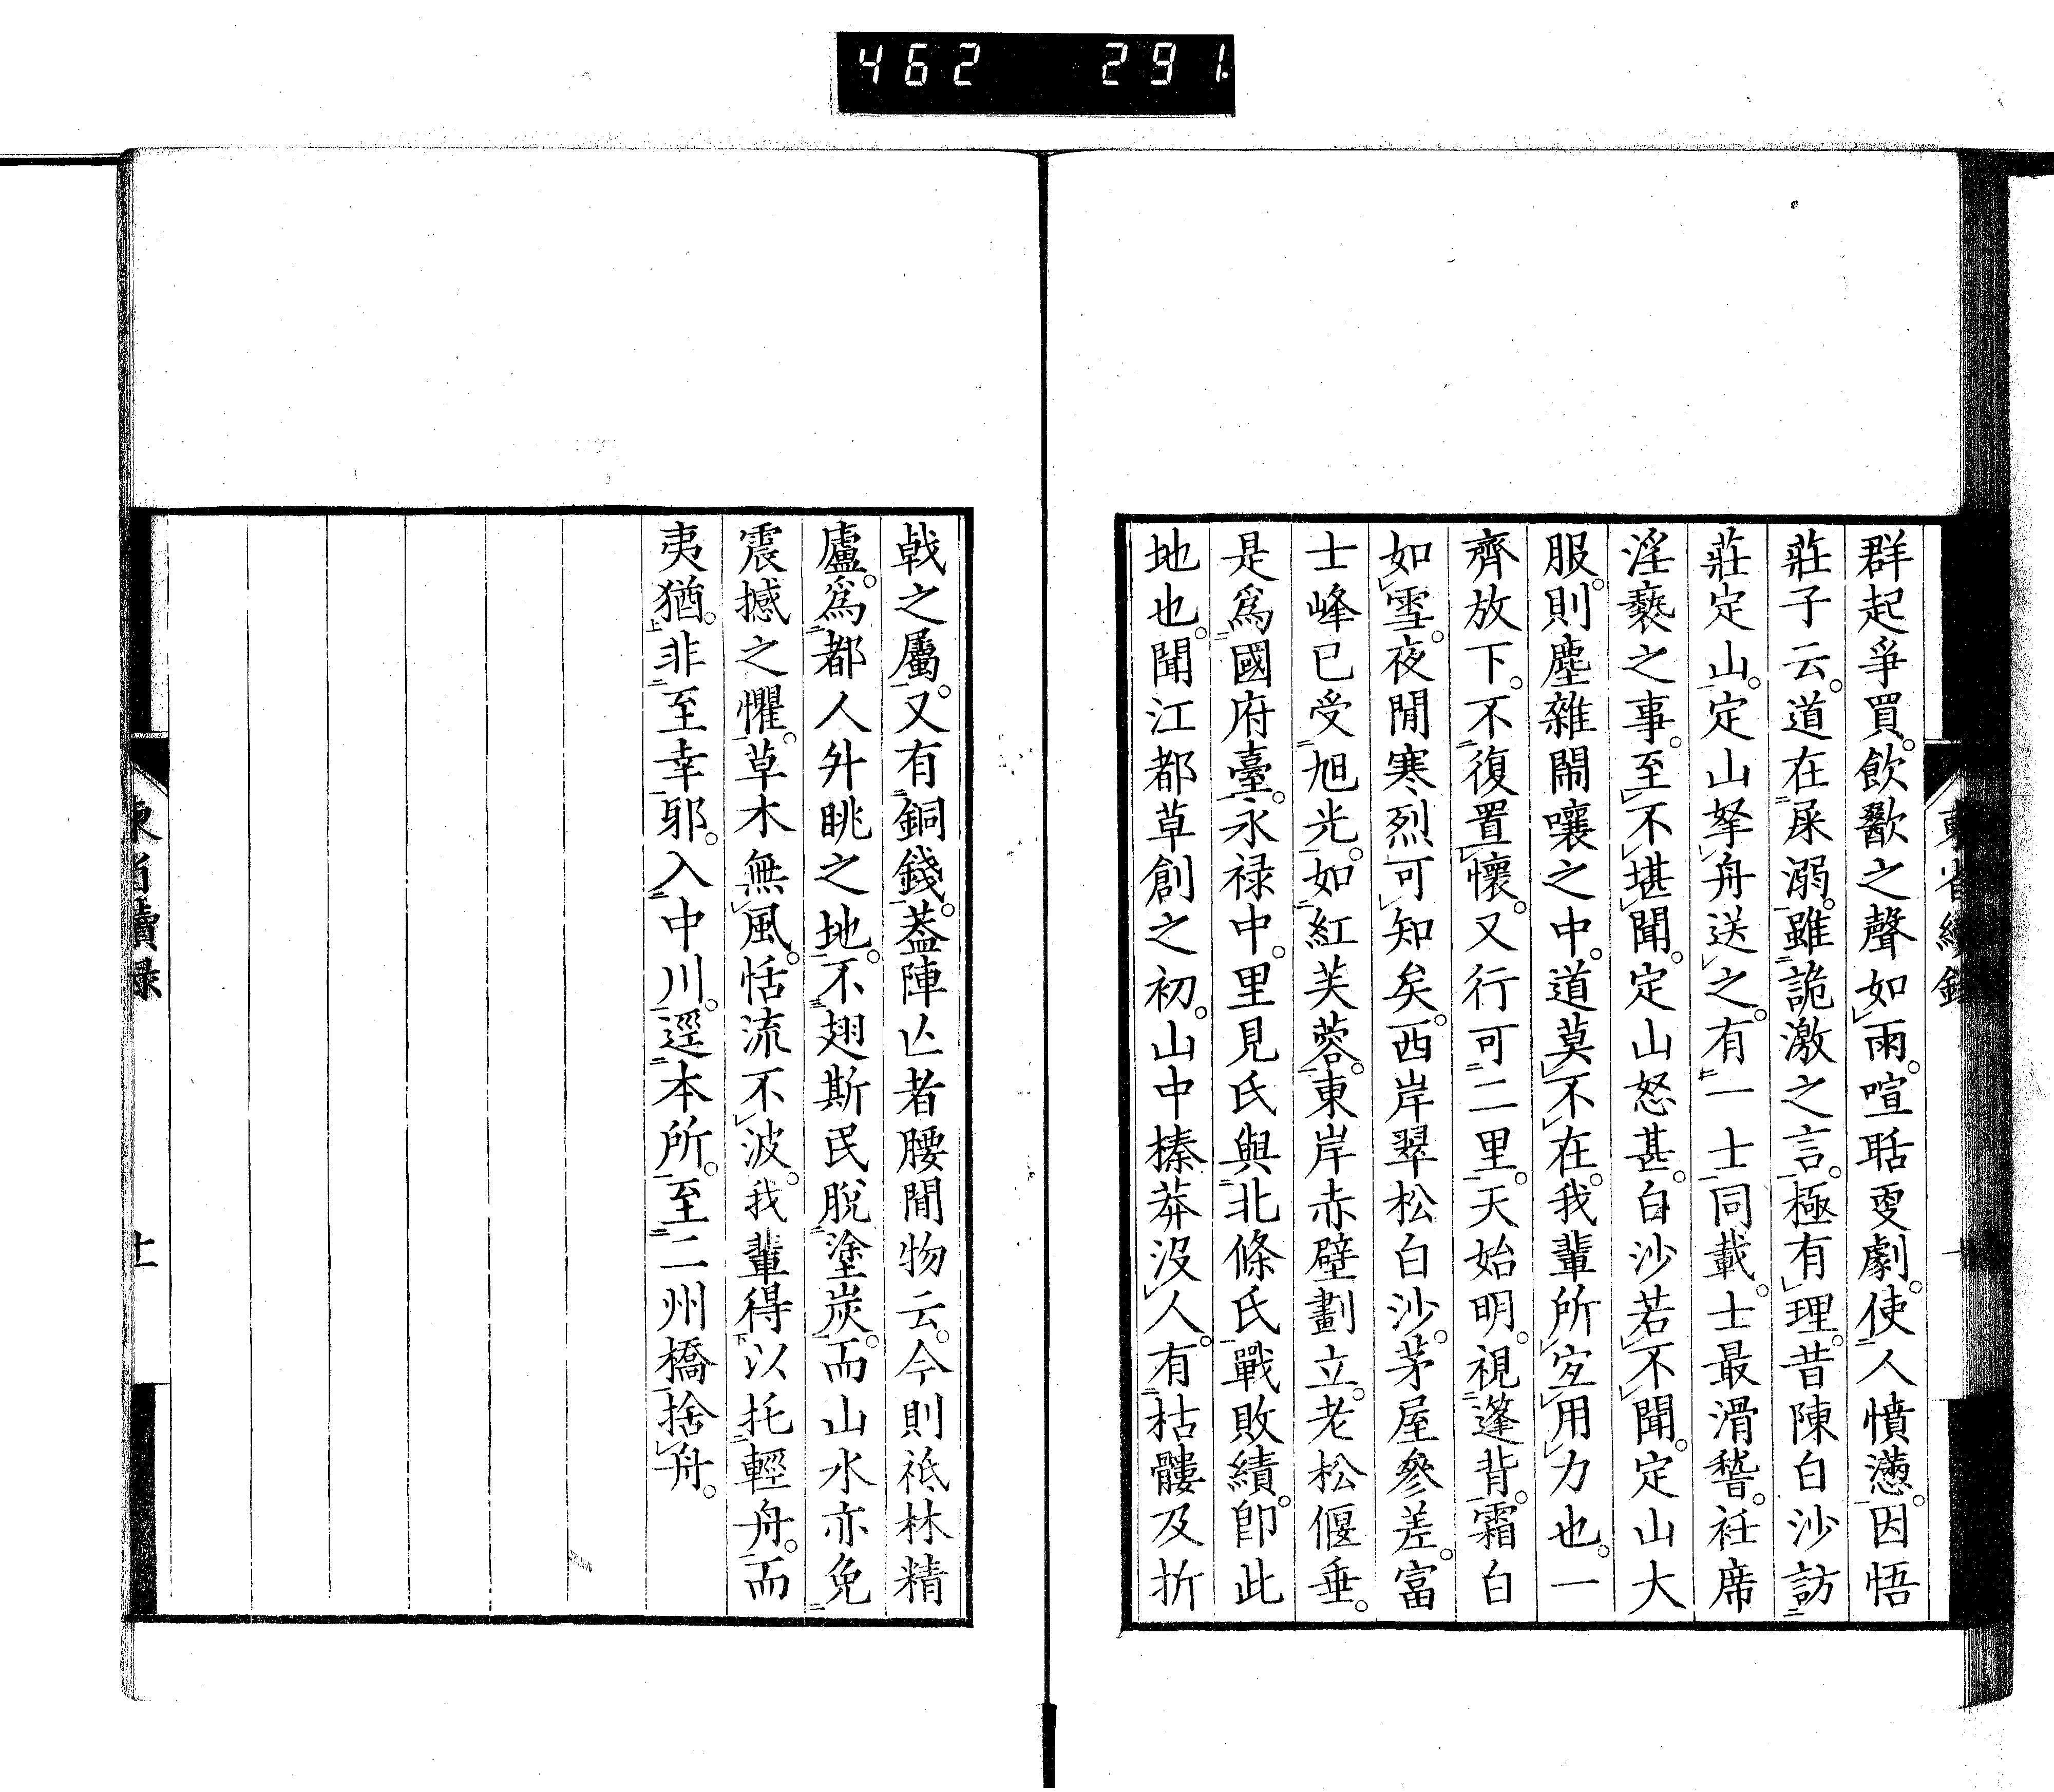 462 291
群起爭買。飲歠之聲如雨。喧聒更劇。使人憤懣。因悟
莊子云。道在尿溺。雖詭激之言。極有理。昔陳白沙訪
莊定山。定山拏舟送之。有一士同載。士最滑稽。衽席
淫褻之事。至不堪聞。定山怒甚。白沙若不聞。定山大
服。則塵雜鬧嚷之中。道莫不在。我輩所宜用力也。一
齊放下。不復置懷。又行可二里。天始明。視篷背。霜白
如雪。夜間寒烈可知矣。西岸翠松白沙。茅屋參差。富
士峰已受旭光。如紅芙蓉。東岸赤壁劃立。老松偃垂。
是爲國府臺。永禄中。里見氏與北條氏戰敗績。即此
地也。聞江都草創之初。山中榛莽沒人。有枯髏及折
戟之屬。又有銅錢。葢陣亾者腰間物云。今則祗林精
廬。爲都人外眺之地。不翅斯民脫塗炭。而山水亦免
震撼之懼。草木無風。恬流不波。我輩得以托輕舟。而
夷猶。非至幸耶。入中川。逕本所。至二州橋捨舟。